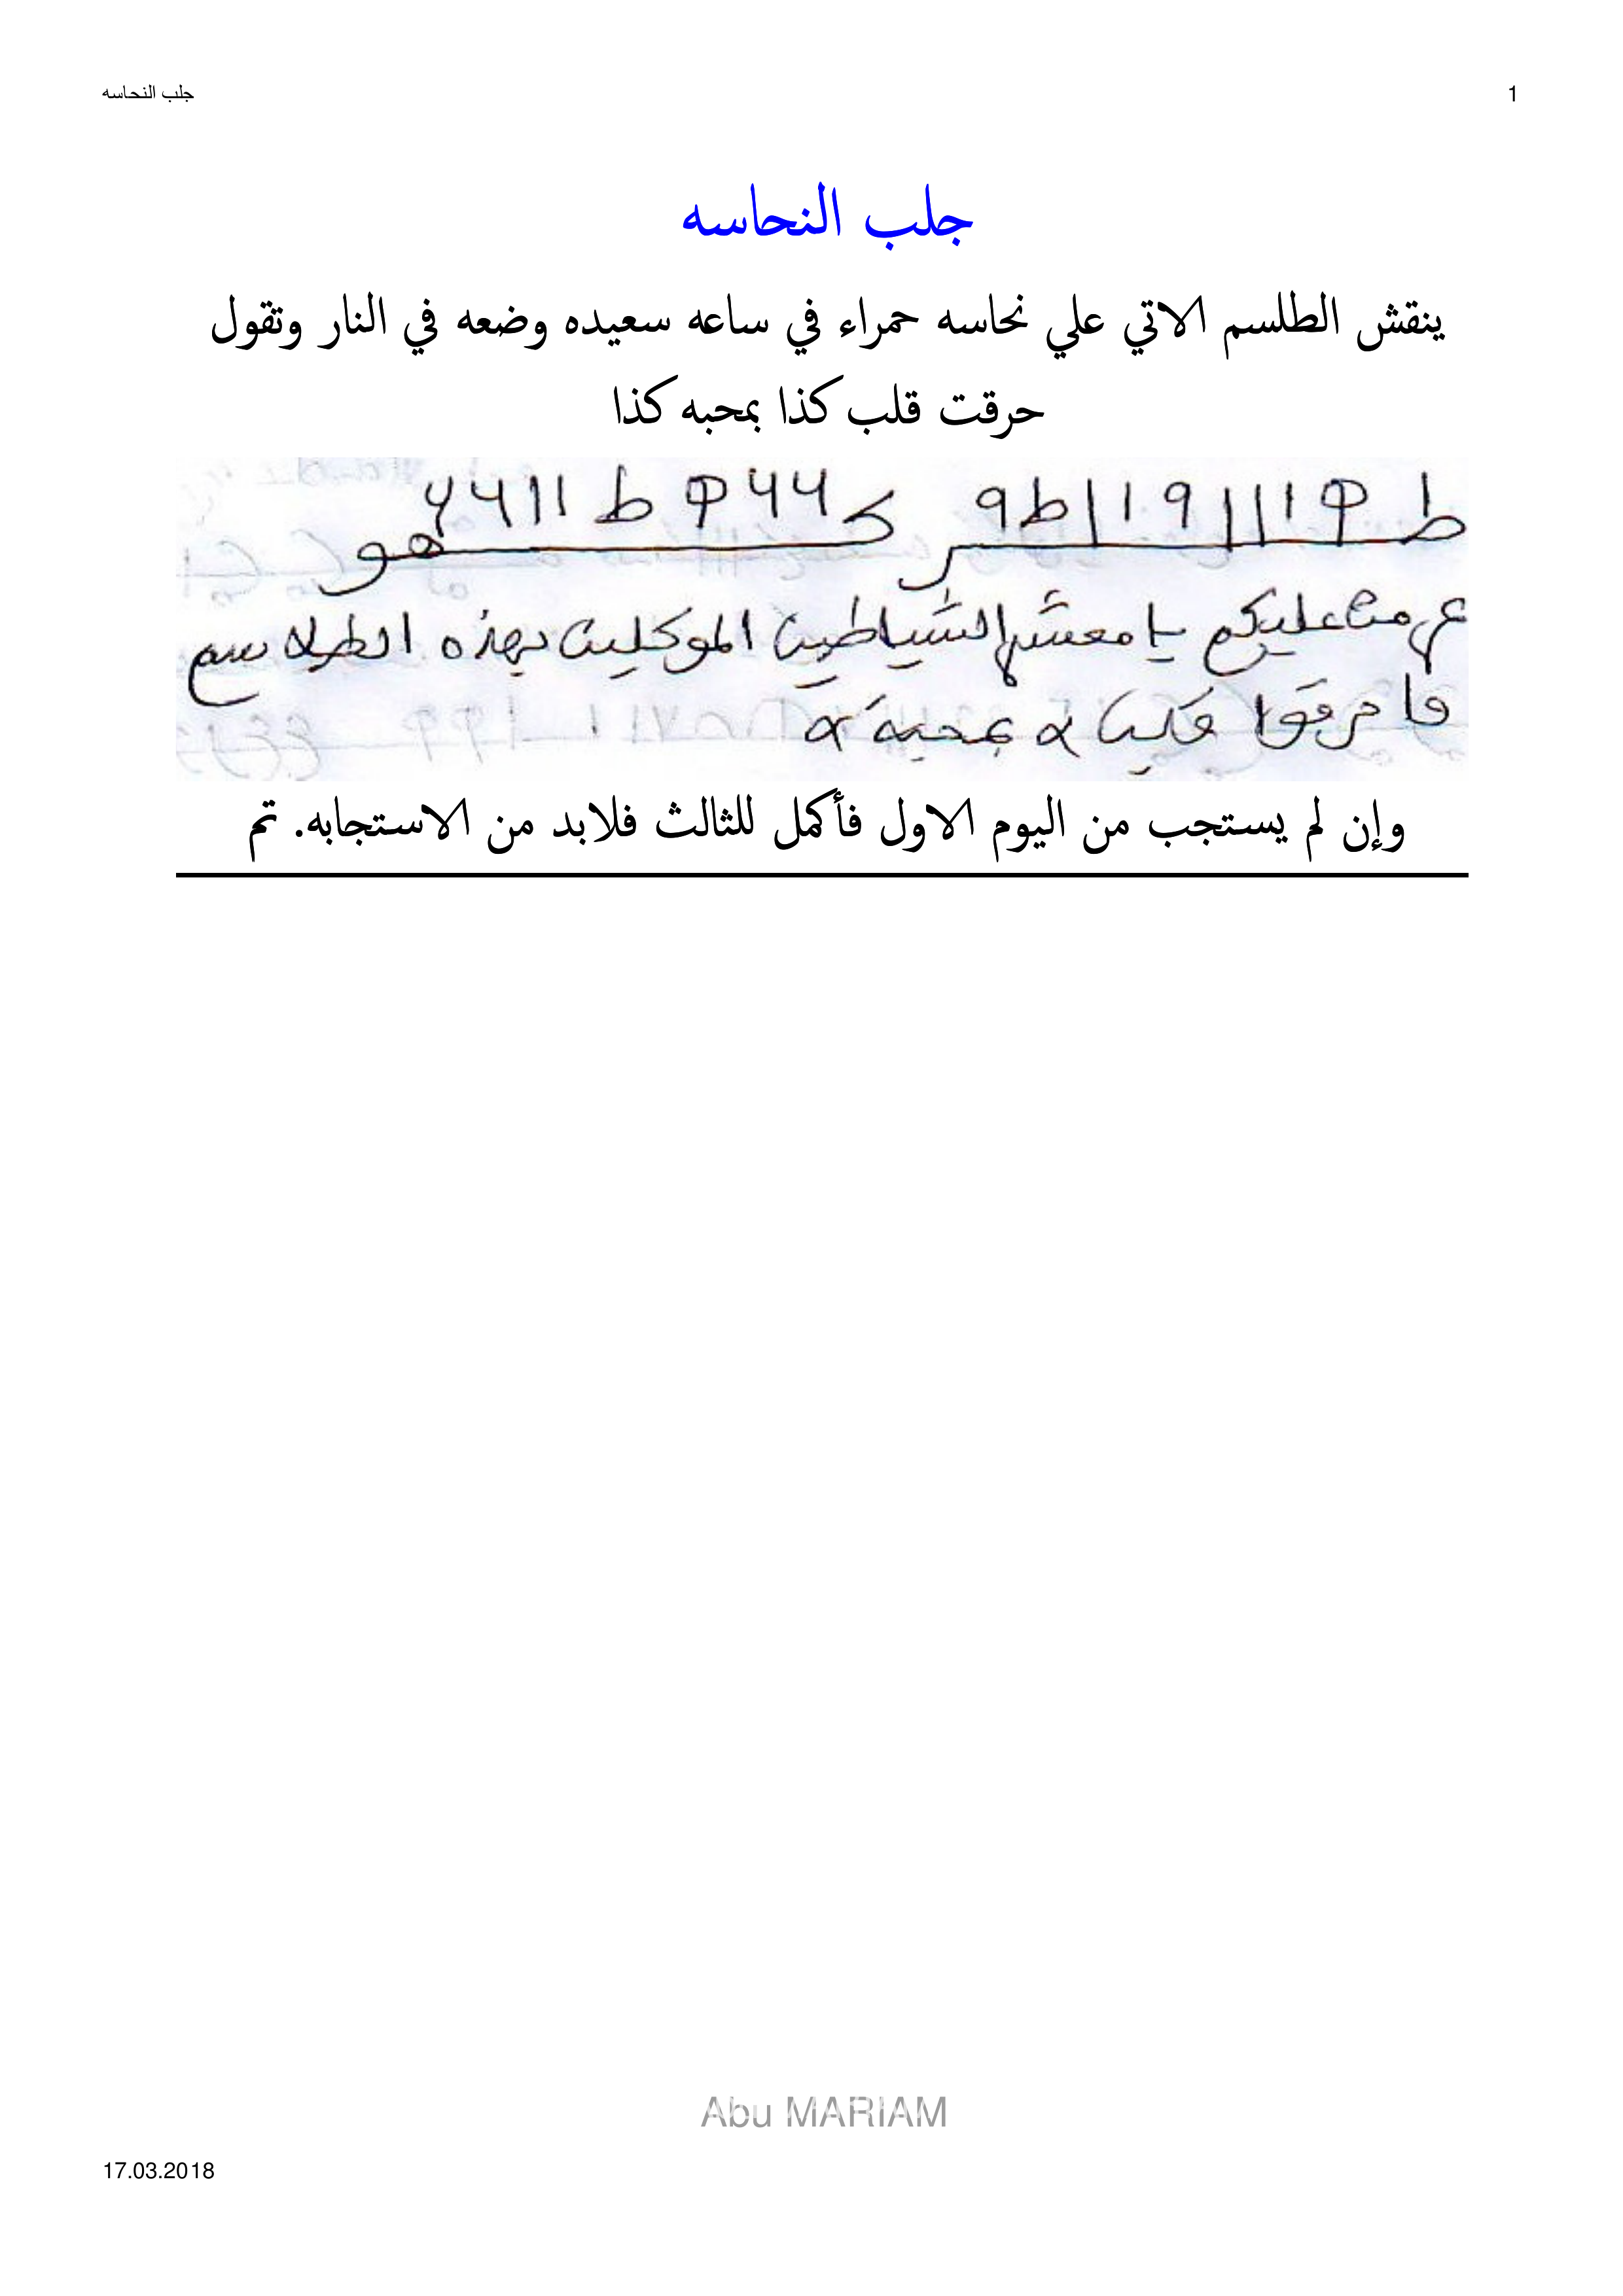 جلب النحاسه
1
جلب النحاسه
ينقش الطلسم الاتي علي نحاسه حمراء في ساعه سعيده وضعه في النار وتقول
حرقت قلب كذا بمحبه كذا
عليكم يا معشر الشياطين الموكلين بهذه الطلاسم
بمحبة
وإن لم يستجب من اليوم الاول فأكمل للثالث فلابد من الاستجابه. تم
Abu MARIAM
17.03.2018